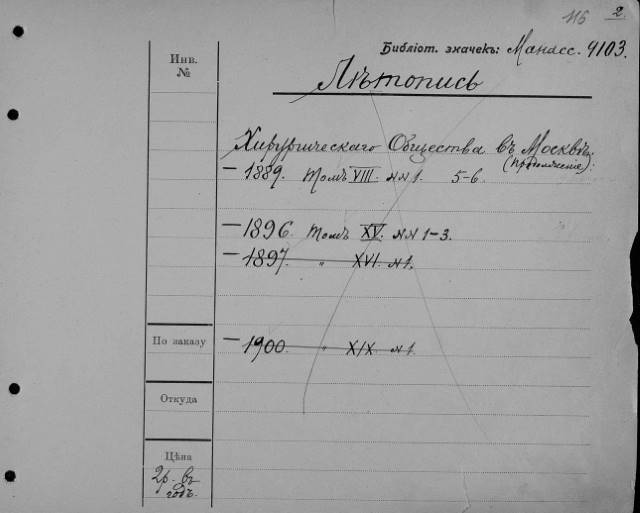 116 2.
Библіот. значекъ: Манасс. 4103.
Инв.
№
Лѣтопись
Хирургическаго Общества въ Москвѣ.
(продолженіе):
— 1889. Томъ VIII. №№ 1. 5-6.
— 1896. Томъ XV. №№ 1-3.
— 1897. " XVI. №1.
По заказу
— 1900. " XIX №1.
Откуда
Цѣна
2р. въ
годъ.